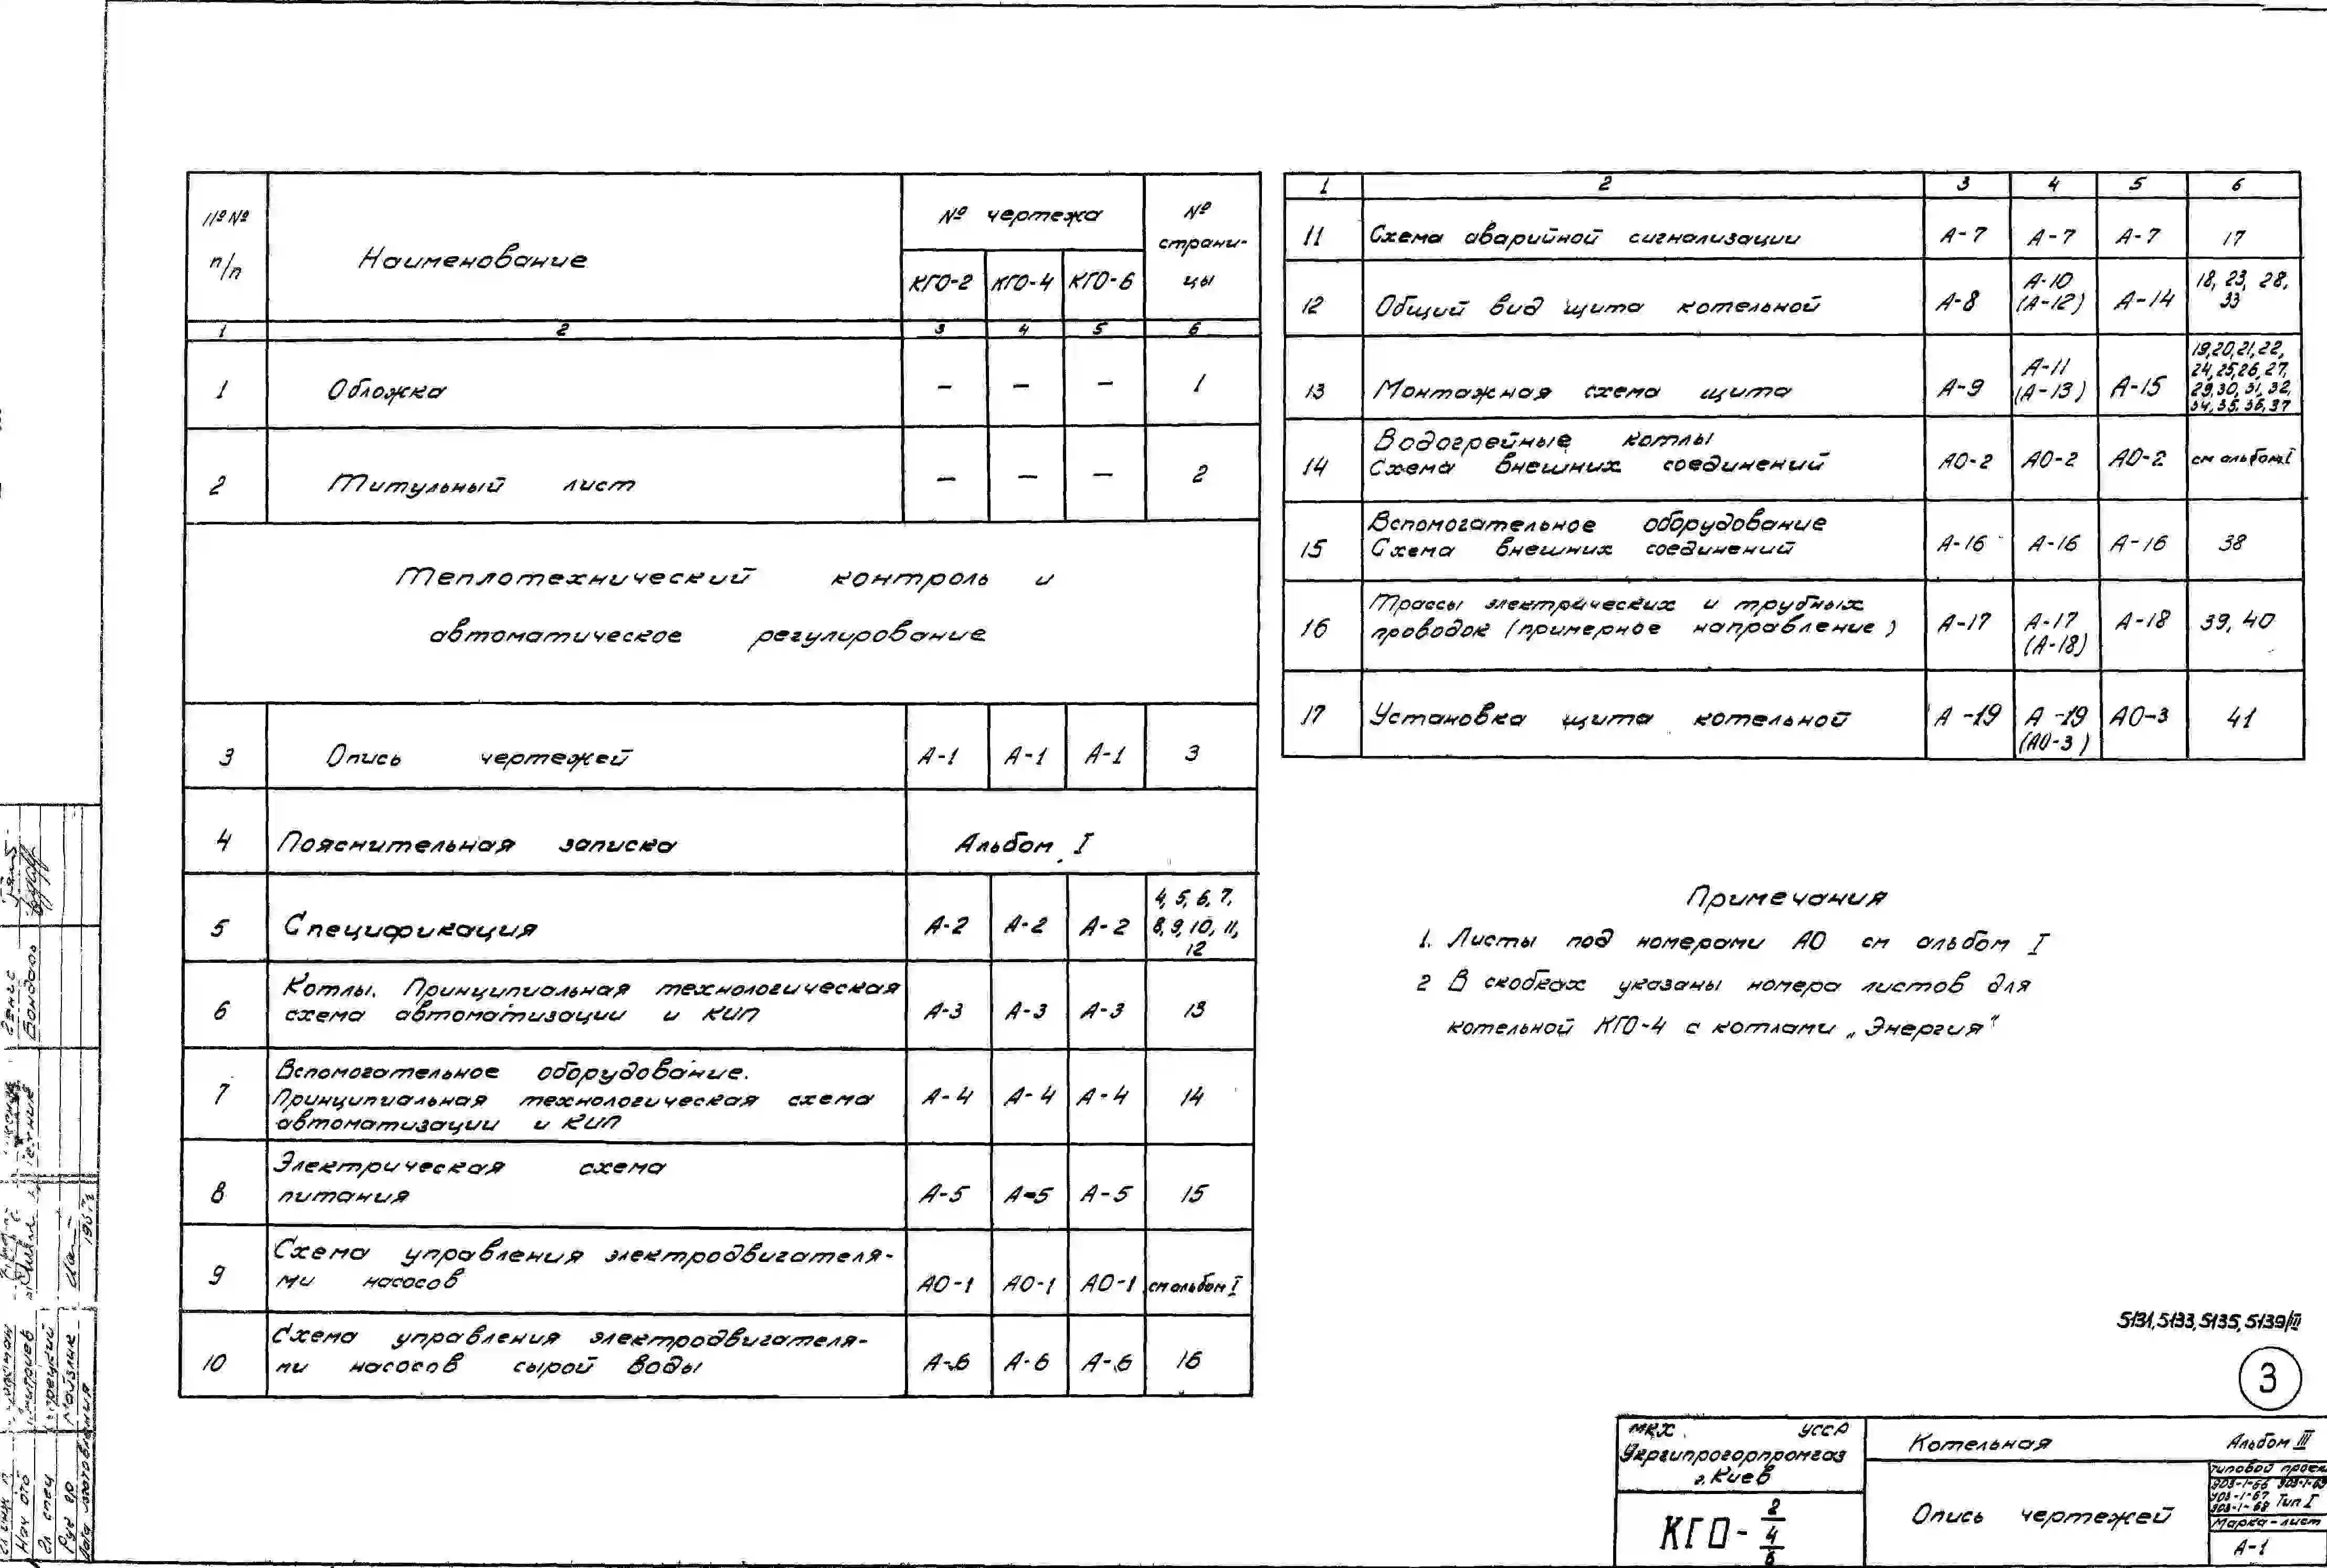 №№ п/п Наименование № чертежа № страни-
цы
КГО-2 КГО-4 КГО-6
1 2 3 4 5 6
1 Обложка — — — 1
2 Титульный лист — — — 2
Теплотехнический контроль и
автоматическое регулирование
3 Опись чертежей А-1 А-1 А-1 3
4 Пояснительная записка Альбом I
5 Спецификация А-2 А-2 А-2 4, 5, 6, 7,
8, 9, 10, 11,
12
6 Котлы. Принципиальная технологическая
схема автоматизации и КИП А-3 А-3 А-3 13
7 Вспомогательное оборудование.
Принципиальная технологическая схема
автоматизации и КИП А-4 А-4 А-4 14
8 Электрическая схема
питания А-5 А-5 А-5 15
9 Схема управления электродвигателя-
ми насосов АО-1 АО-1 АО-1 см альбом I
10 Схема управления электродвигателя-
ми насосов сырой воды А-6 А-6 А-6 16
1 2 3 4 5 6
11 Схема аварийной сигнализации А-7 А-7 А-7 17
12 Общий вид щита котельной А-8 А-10
(А-12) А-14 18, 23, 28,
33
13 Монтажная схема щита А-9 А-11
(А-13) А-15 19,20,21,22,
24,25,26,27,
29,30,31,32,
34,35,36,37
14 Водогрейные котлы
Схема внешних соединений АО-2 АО-2 АО-2 см альбом I
15 Вспомогательное оборудование
Схема внешних соединений А-16 А-16 А-16 38
16 Трассы электрических и трубных
проводок (примерное направление) А-17 А-17
(А-18) А-18 39, 40
17 Установка щита котельной А-19 А-19
(АО-3) АО-3 41
Примечания
1. Листы под номерами АО см альбом I
2 В скобках указаны номера листов для
котельной КГО-4 с котлами „Энергия"
5131,5133,5135,5139/III
3
МКХ УССР
Укргипрогорпромгаз
г. Киев
КГО- 2
4
6
Котельная Альбом III
Опись чертежей
типовой проек
903-1-66
903-1-67
903-1-68 Тип I
Марка-лист
А-1
Нач отд
Гл спец
Рук гр
Мойзлис
Бондарь